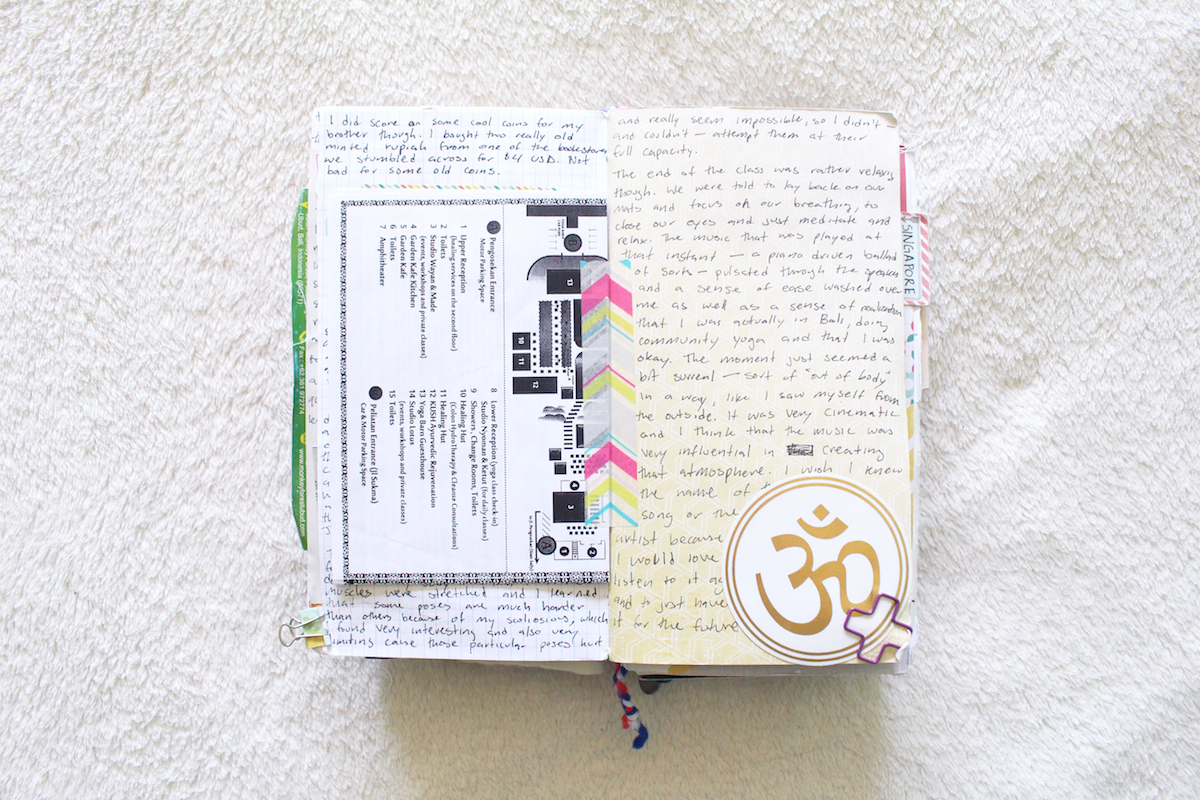 I did score on some cool coins for my
brother though. I bought two really old
minted rupiah from one of the bookstores
we stumbled across for $4 USD. Not
bad for some old coins.
A Pengosekan Entrance
Motor Parking Space
1 Upper Reception
(healing services on the second floor)
2 Toilets
3 Studio Wayan & Made
(events, workshops and private classes)
4 Garden Kafe Kitchen
5 Garden Kafe
6 Toilets
7 Amphitheater
8 Lower Reception (yoga class check-in)
Studio Nyoman & Ketut (for daily classes)
9 Showers, Change Rooms, Toilets
10 Healing Hut
(Colon HydroTherapy & Cleanse Consultations)
11 Healing Hut
12 KUSH Ayurvedic Rejuvenation
13 Yoga Barn Guesthouse
14 Studio Lotus
(events, workshops and private classes)
15 Toilets
Peliatan Entrance (Jl Sukma)
Car & Motor Parking Space
B
13
10
11
12
4
3
A
1
2
muscles were stretched and I learned
that some poses are much harder
than others because of my scoliosious, which
I found very interesting and also very
limiting cause those particular poses hurt
and really seem impossible, so I didn't
and couldn't — attempt them at their
full capacity.
The end of the class was rather relaxing
though. We were told to lay back on our
mats and focus on our breathing, to
close our eyes and just meditate and
relax. The music that was played at
that instant — a piano driven ballad
of sorts — pulsated through the speakers
and a sense of ease washed over
me as well as a sense of realization
that I was actually in Bali, doing
community yoga and that I was
okay. The moment just seemed a
bit surreal — sort of "out of body"
in a way, like I saw myself from
the outside. It was very cinematic
and I think that the music was
very influential in creating
that atmosphere. I wish I knew
the name of
song or the
artist because
I would love
listen to it
and to just have
it for the future
ॐ
SINGAPORE
Ubud, Bali, Indonesia
Fax : +62 361 972774
www.monkeyforestubud.com